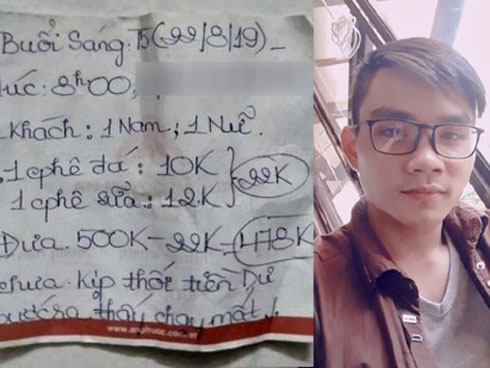 Buổi Sáng. T5 (22/8/19) _
Lúc: 8h00,
Khách: 1 Nam; 1 Nữ.
1 cphê đá: 10K
1 cphê sữa: 12.K
22K
Đưa. 500K-22K 478K
chưa kịp thối tiền Dư
thấy chạy mất!
www.anphuoc.com.vn